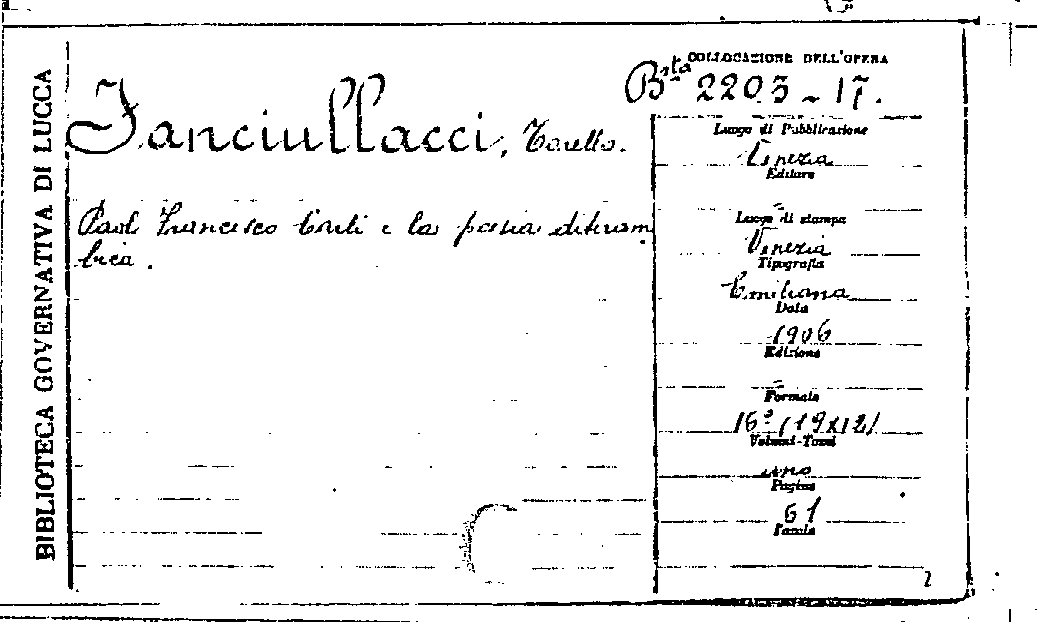 BIBLIOTECA GOVERNATIVA DI LUCCA
Fanciullacci, Torello.
Paol. Francesco Carli e la poesia ditiram
bica.
COLLOCAZIONE DELL'OPERA
Bsta 2203 - 17.
Luogo di Pubblicazione
Venezia
Editore
Luogo di stampa
Venezia
Tipografia
Emiliana
Data
1906
Edizione
Formato
16° (19x12)
Volumi-Tomi
uno
Pagine
61
Tavole
2